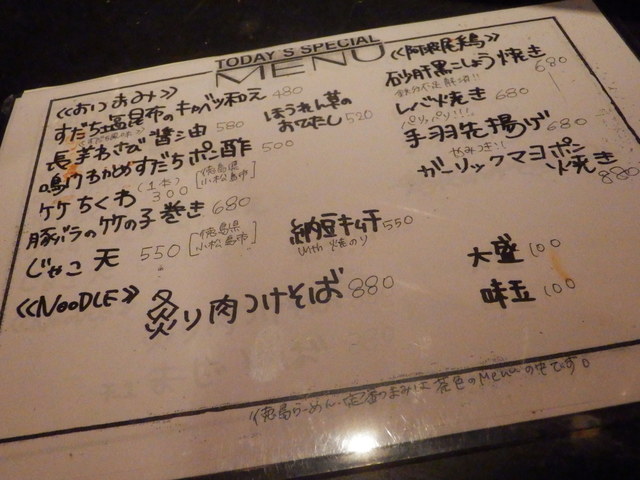 TODAY'S SPECIAL
MENU
≪おつまみ≫
すだち塩昆布のキャベツ和え 480
長芋わさび醤油 580
鳴門わかめすだちポン酢 500
竹ちくわ (1本) 300 [徳島県小松島市]
豚バラの竹の子巻き 680
じゃこ天 550 [徳島県小松島市]
ほうれん草の
おひたし 520
納豆キムチ 550
with 焼のり
≪阿波尾鶏≫
砂肝黒こしょう焼き 680
レバ焼き 680
パリパリ!!
手羽先揚げ 680
ガーリックマヨポン
焼き 880
≪NOODLE≫
炙り肉つけそば 880
大盛 100
味玉 100
徳島らーめん・定番つまみは茶色のMenuの中です。